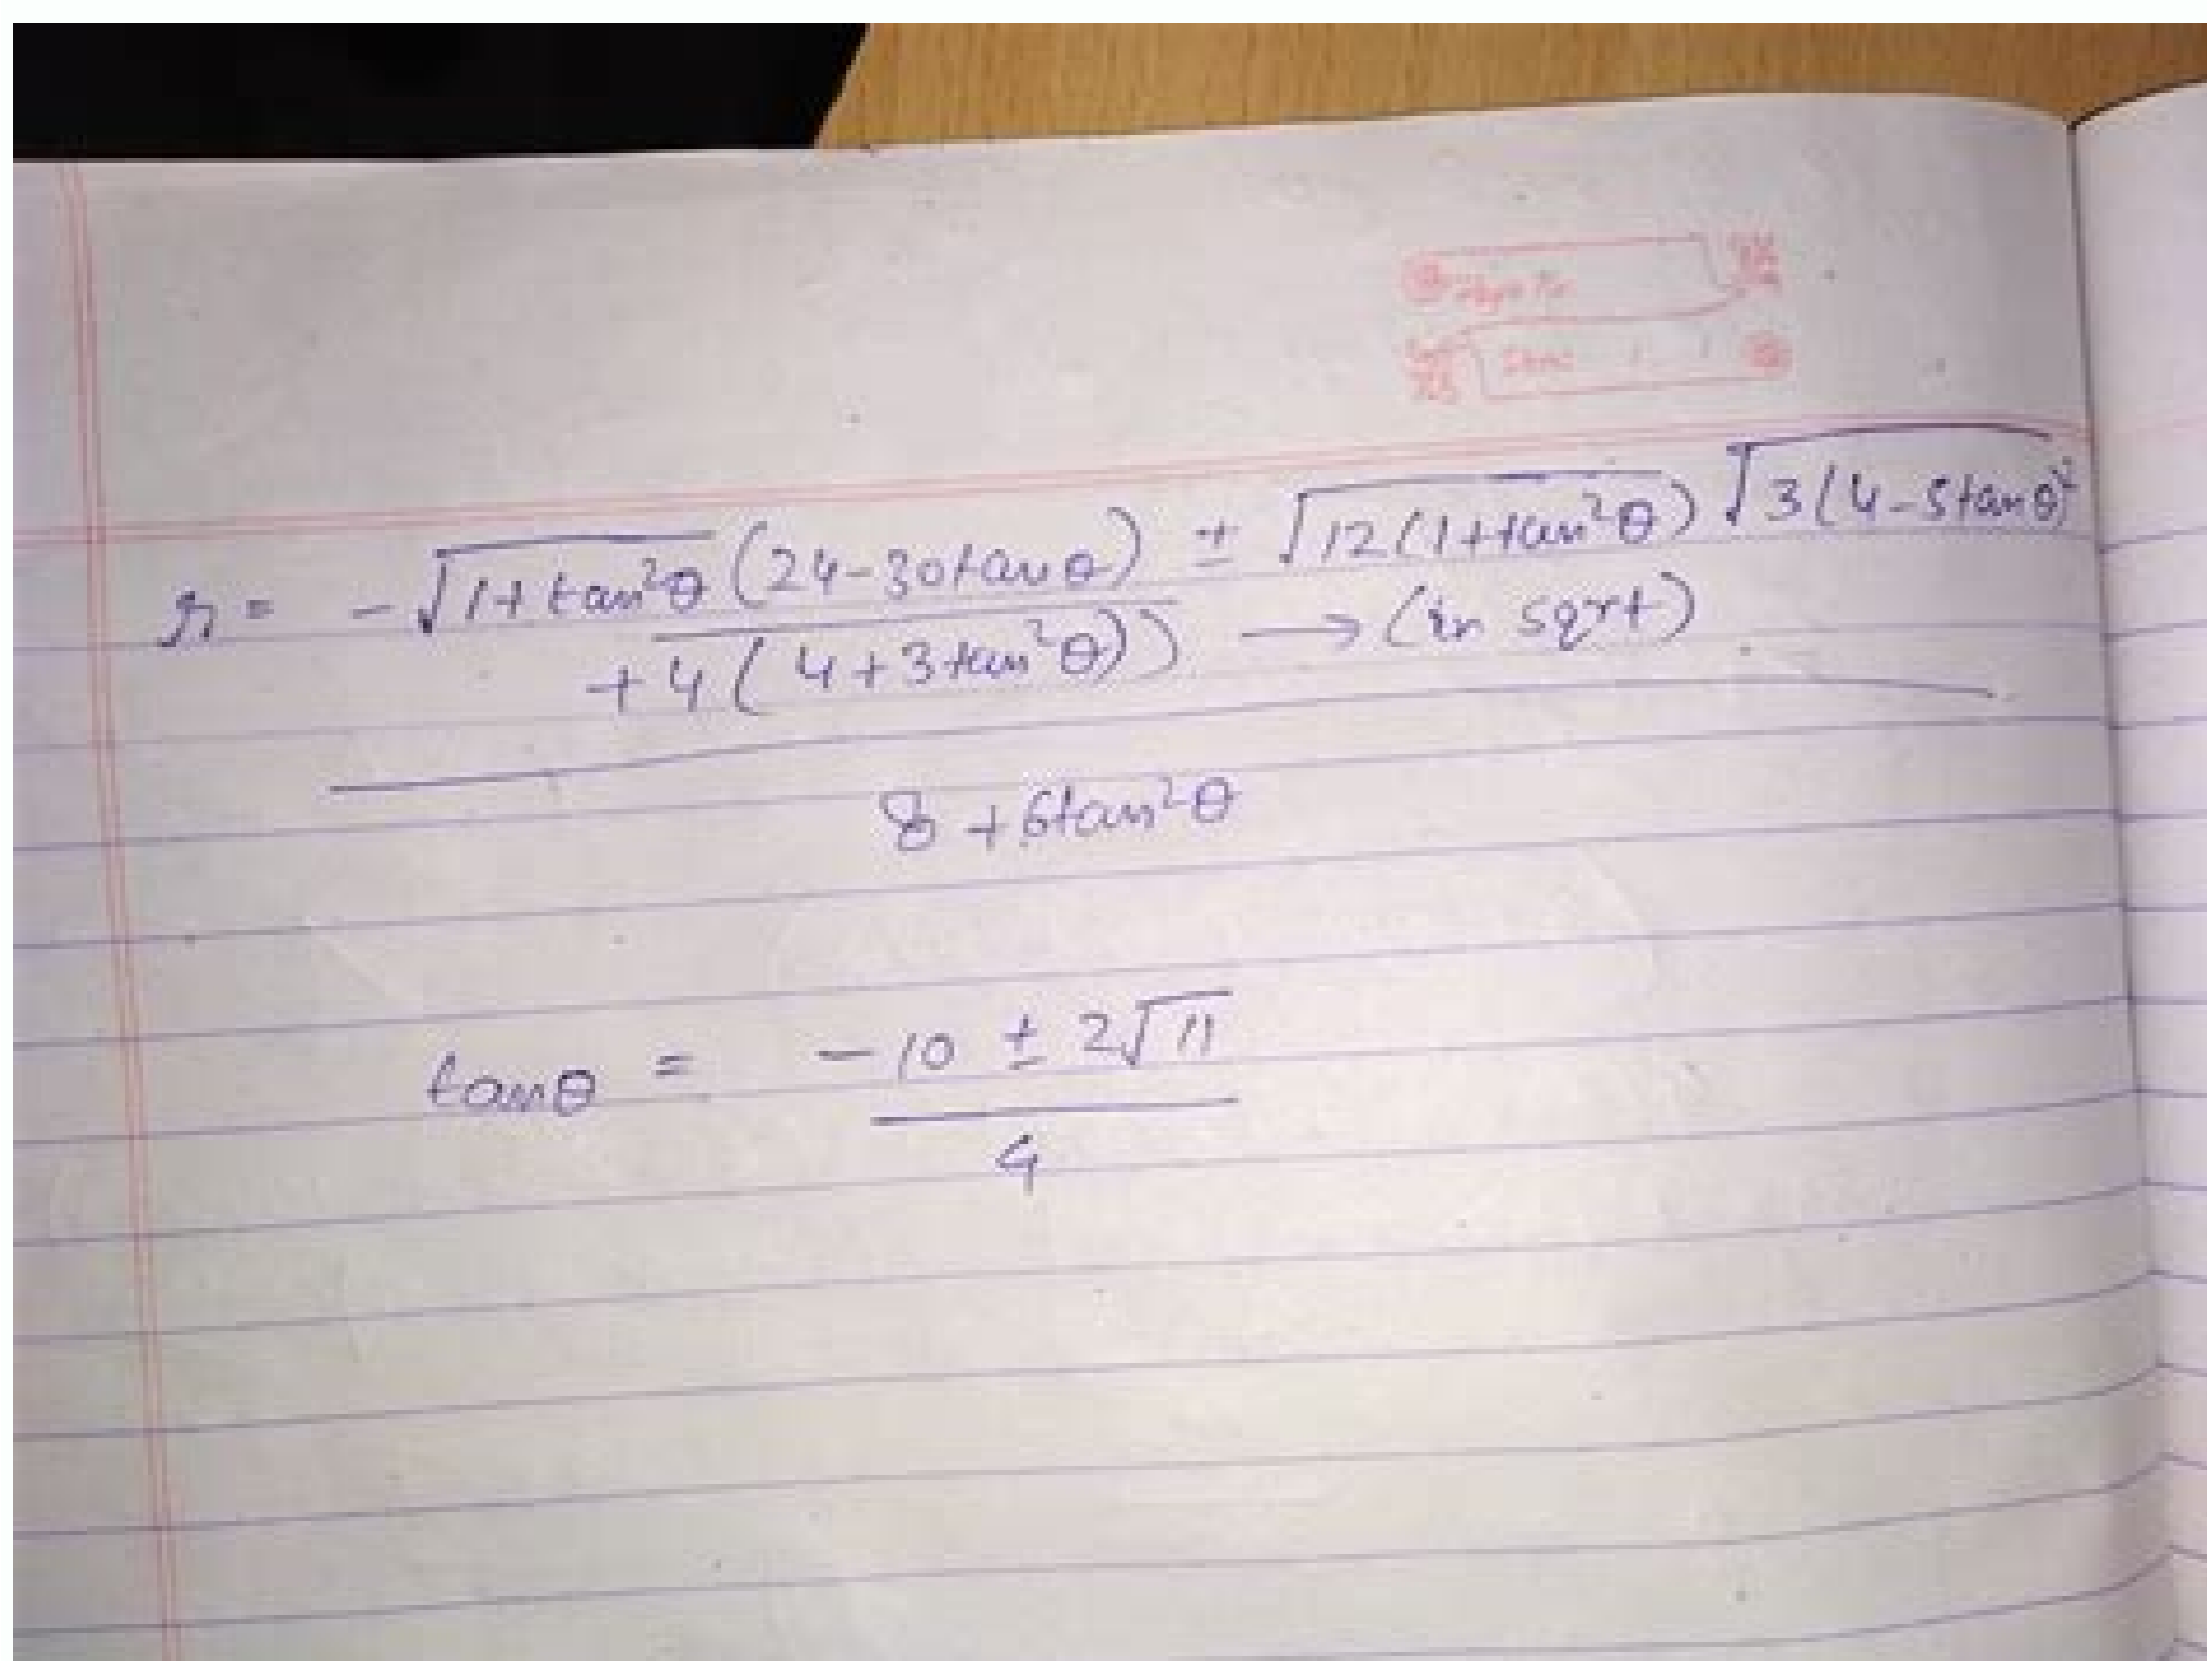 r = -√(1+tan²θ) (24-30tanθ) ± √(12(1+tan²θ)) √3(4-5tanθ)²
+4(4+3tan²θ)) → (in sqrt)
8+6tan²θ
tanθ = -10 ± 2√11
4